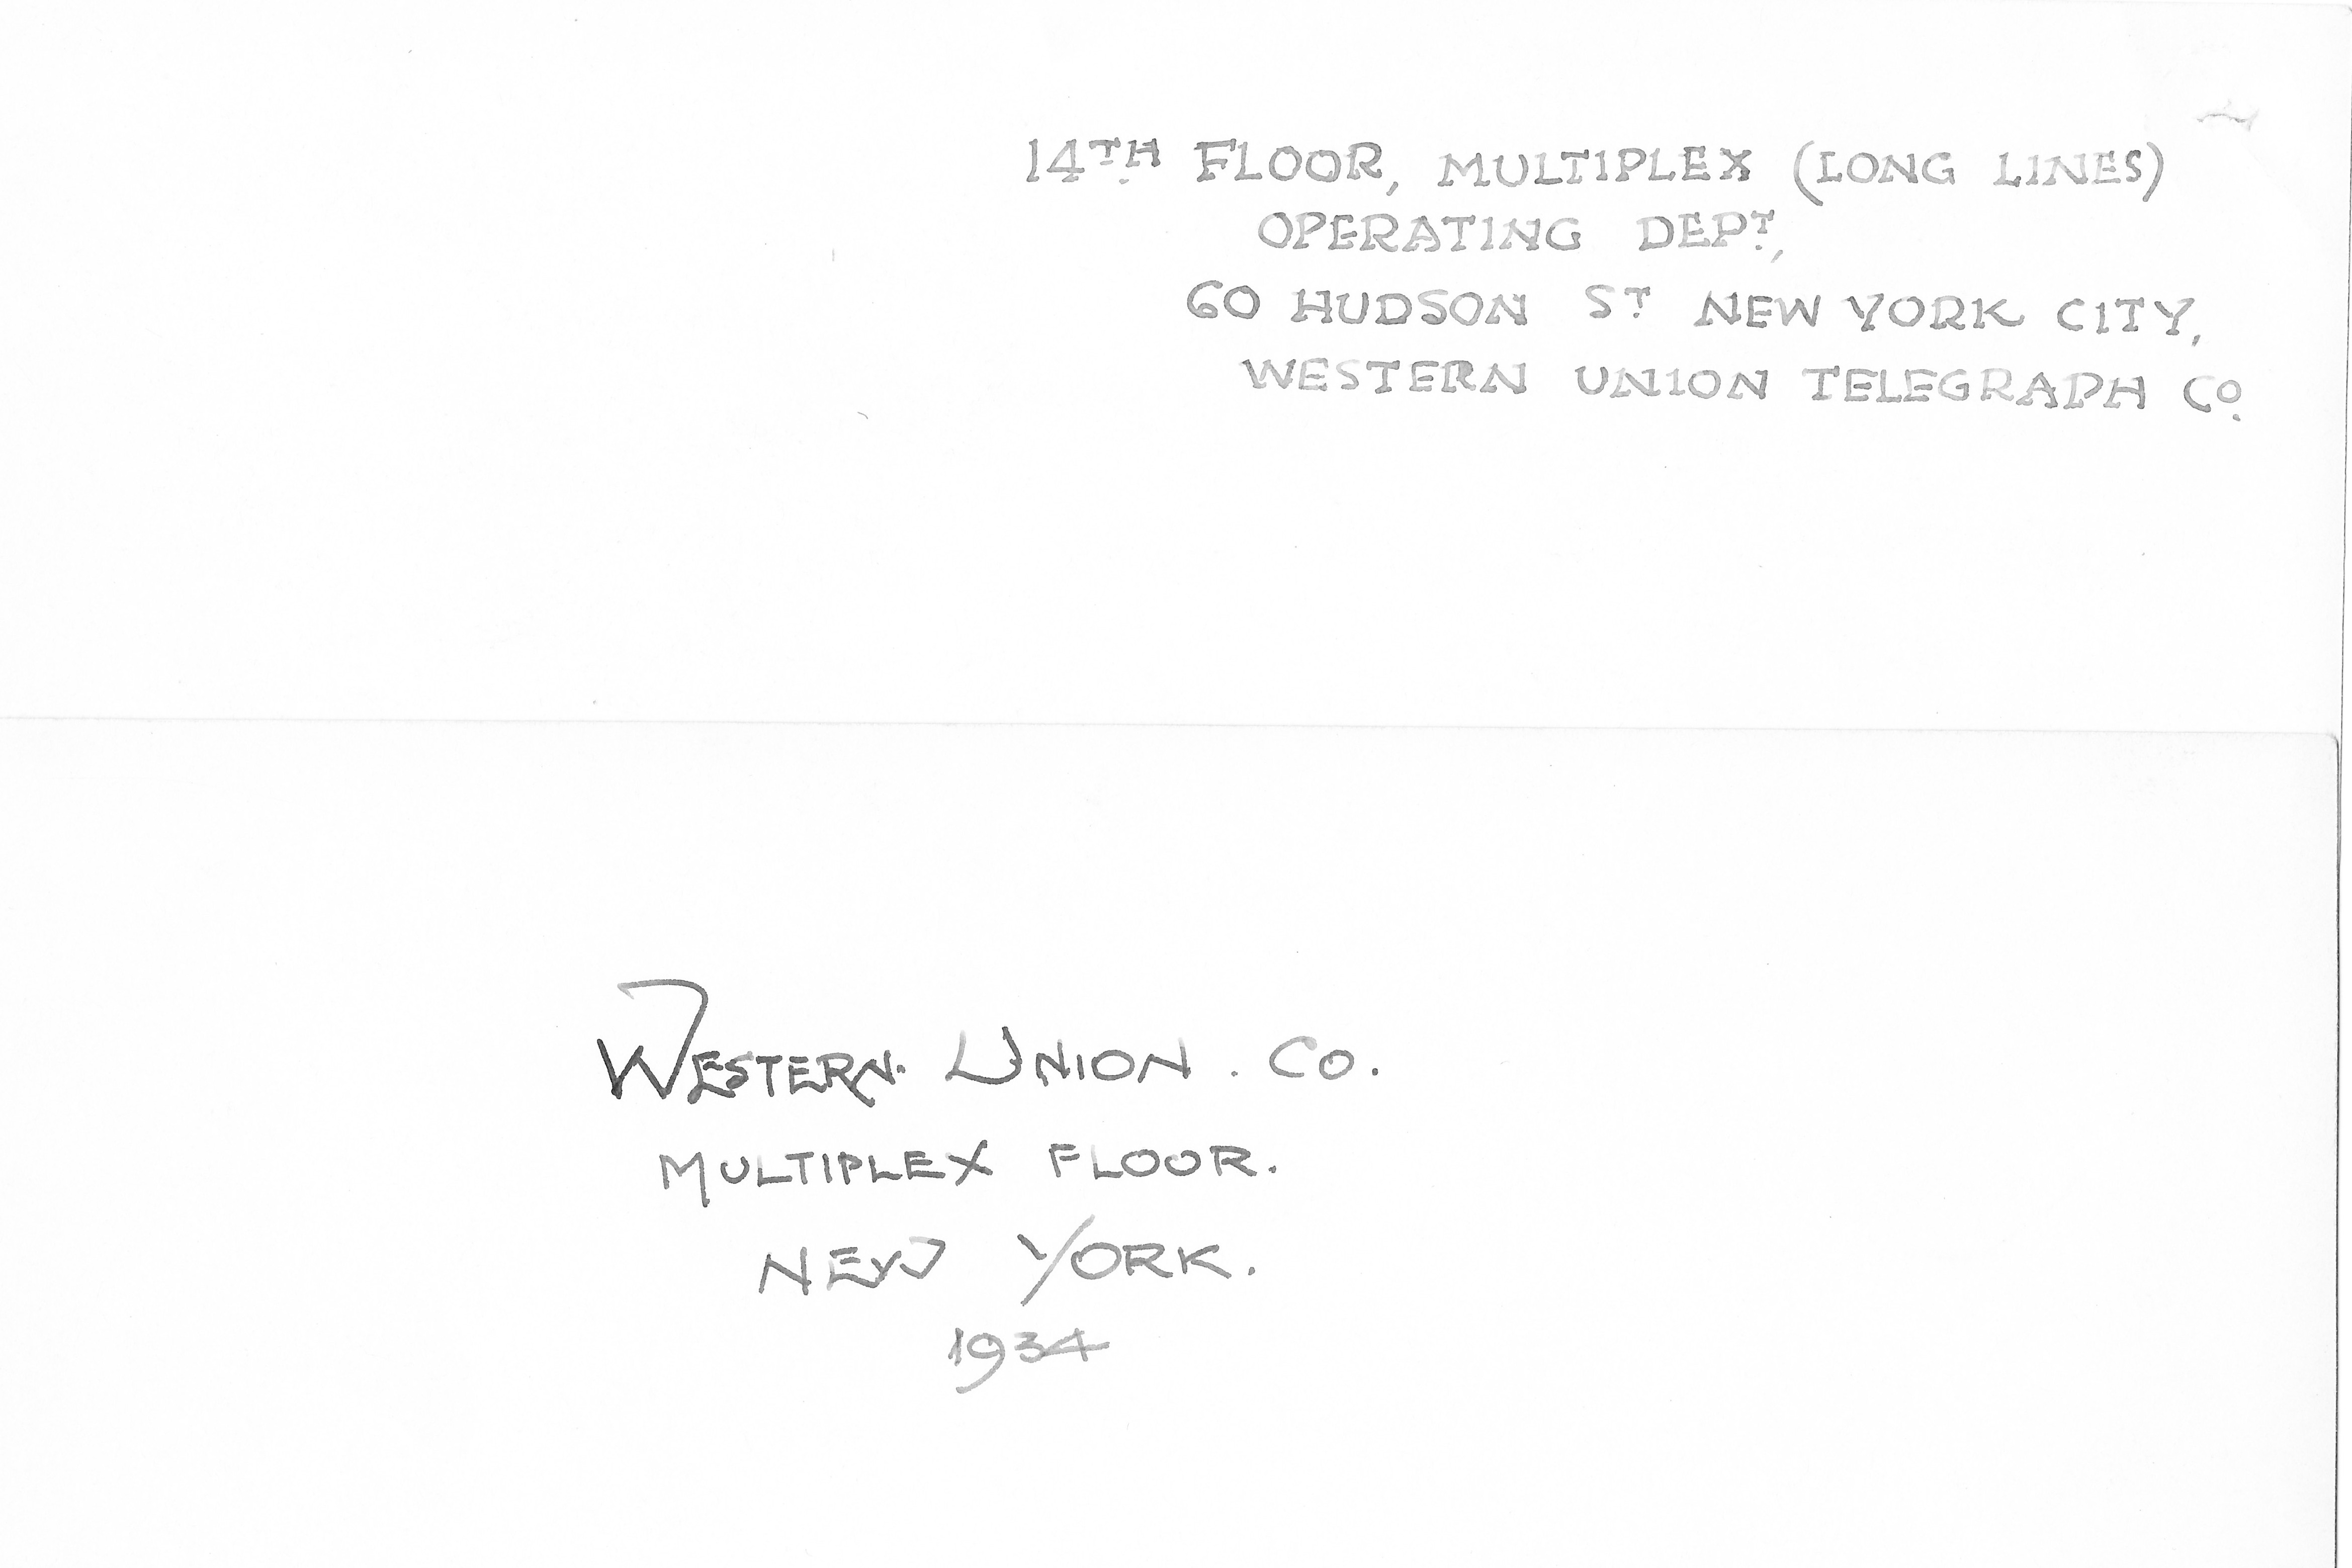 14TH FLOOR, MULTIPLEX (LONG LINES)
OPERATING DEPT,
60 HUDSON ST NEW YORK CITY,
WESTERN UNION TELEGRAPH CO.
WESTERN. UNION. CO.
MULTIPLEX FLOOR.
NEW YORK.
1934